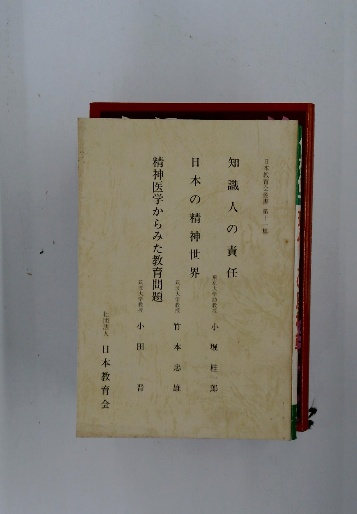 日本教育会叢書 第十一集
知識人の責任
東京大学助教授 小堀桂一郎
日本の精神世界
筑波大学教授 竹本忠雄
精神医学からみた教育問題
筑波大学教授 小田晋
社団法人 日本教育会